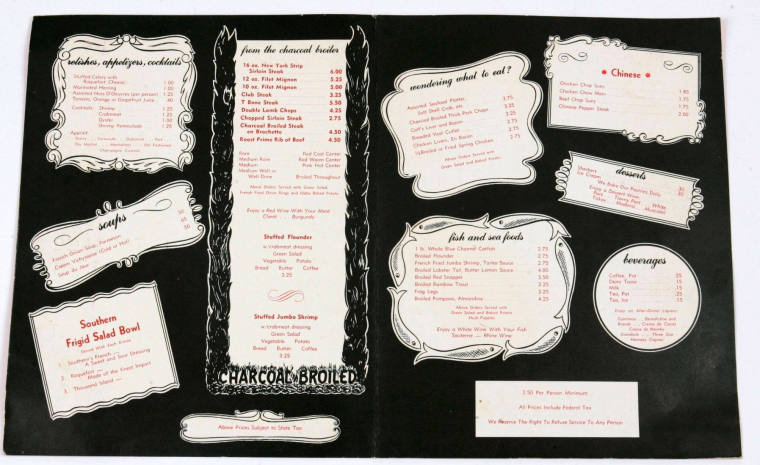 relishes, appetizers, cocktails
Stuffed Celery with
Roquefort Cheese 1.00
Marinated Herring 1.00
Assorted Hors D'Oeuvres (per person) 1.25
Tomato, Orange or Grapefruit Juice .40
Cocktails: Shrimp 1.25
Crabmeat 1.25
Oyster 1.25
Shrimp Remoulade 1.25
soups
French Onion Soup, Parmesan
Cream Vichyssoise (Cold or Hot)
Soup du Jour
Southern
Frigid Salad Bowl
Served With Each Entree
1. Southern's French —
A Sweet and Sour Dressing
2. Roquefort —
Made of the Finest Import
3. Thousand Island —
from the charcoal broiler
16 oz. New York Strip
Sirloin Steak 6.00
12 oz. Filet Mignon 5.25
10 oz. Filet Mignon 5.00
Club Steak 5.25
T Bone Steak 5.50
Double Lamb Chops 4.25
Chopped Sirloin Steak 2.75
Charcoal Broiled Steak
en Brochette 4.50
Roast Prime Rib of Beef 4.50
Rare Red Cool Center
Medium Rare Red Warm Center
Medium Pink Hot Center
Medium Well or
Well Done Broiled Throughout
Above Orders Served with Green Salad,
French Fried Onion Rings and Idaho Baked Potato
Enjoy a Red Wine With Your Meat
Claret Burgundy
Stuffed Flounder
w/crabmeat dressing
Green Salad
Vegetable Potato
Bread Butter Coffee
3.25
Stuffed Jumbo Shrimp
w/crabmeat dressing
Green Salad
Vegetable Potato
Bread Butter Coffee
3.25
CHARCOAL BROILED
Above Prices Subject to State Tax
wondering what to eat?
Assorted Seafood Platter,
Soft Shell Crab, etc. 3.75
Charcoal Broiled Thick Pork Chops 3.25
Calf's Liver and Bacon 2.75
Breaded Veal Cutlet 2.75
Chicken Livers, En Bacon 2.75
½ Broiled or Fried Spring Chicken 2.75
Above Orders Served with
Green Salad and Baked Potato
Chinese
Chicken Chop Suey 1.85
Chicken Chow Mein 1.75
Beef Chop Suey 1.75
Chinese Pepper Steak 2.50
desserts
Sherbert
Ice Cream
We Bake Our Pastries Daily
Enjoy a Dessert Wine
Port Tawny Port White Port
Tokay Madeira Muscatel
fish and sea foods
1 lb. Whole Blue Channel Catfish 2.75
Broiled Flounder 2.75
French Fried Jumbo Shrimp, Tartar Sauce 2.75
Broiled Lobster Tail, Butter Lemon Sauce 4.00
Broiled Red Snapper 3.50
Broiled Rainbow Trout 3.25
Frog Legs 3.25
Broiled Pompano, Almondine 4.25
Above Orders Served with
Green Salad and Baked Potato
Hush Puppies
Enjoy a White Wine With Your Fish
Sauterne Rhine Wine
beverages
Coffee, Pot .25
Demi Tasse .15
Milk .15
Tea, Pot .25
Tea, Ice .15
Enjoy an After-Dinner Liqueur
2.50 Per Person Minimum
All Prices Include Federal Tax
We Reserve The Right To Refuse Service To Any Person